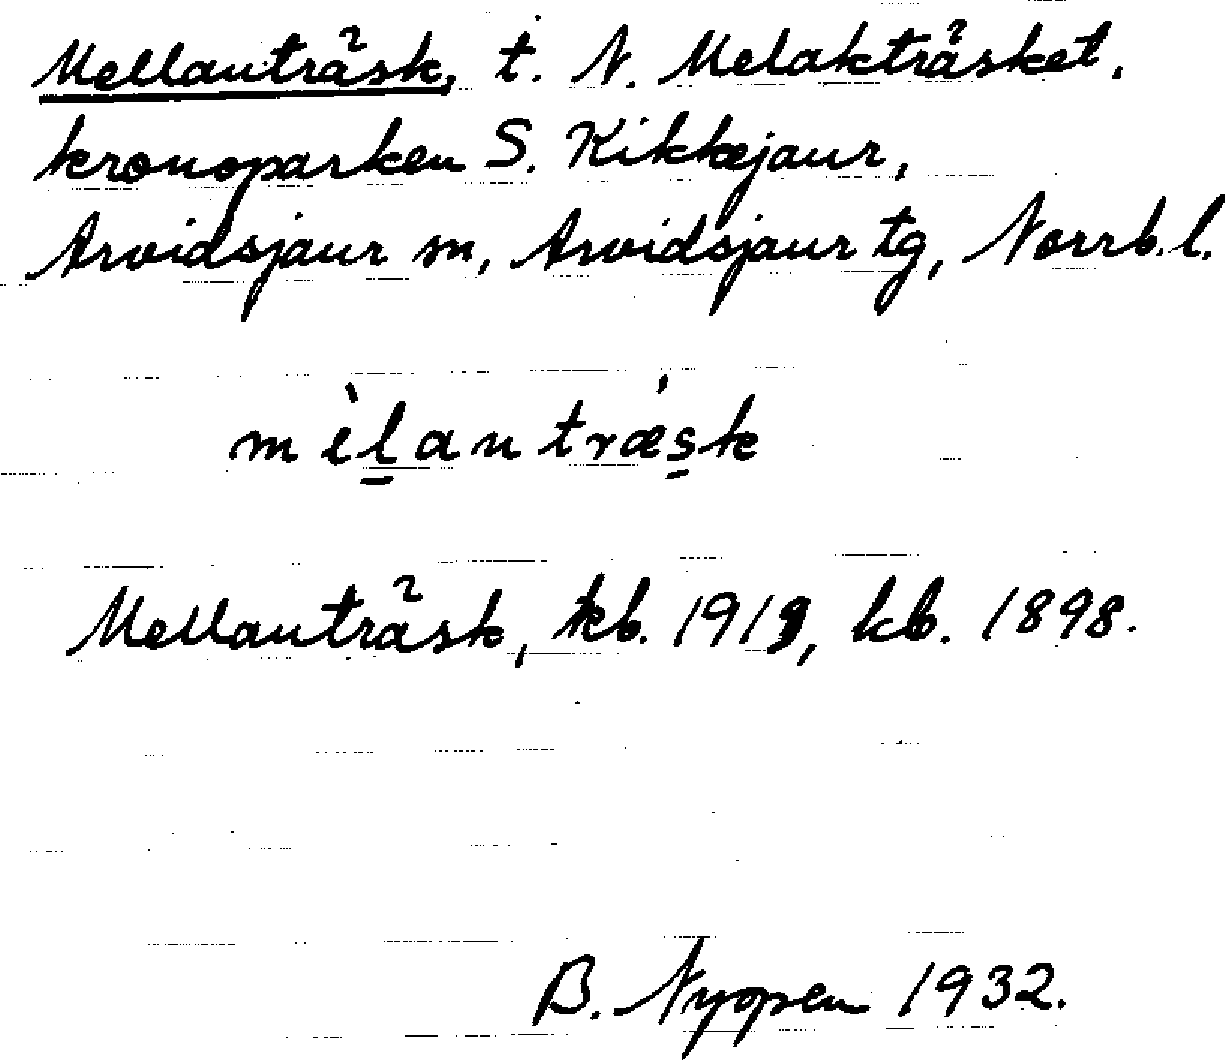 Mellanträsk, t. N. Melakträsket,
kronoparken S. Kikkejaur,
Arvidsjaur sn, Arvidsjaur tg, Norrb. l.
mèl̲antræ̍s̲k
Mellanträsk, kb. 1919, kb. 1898.
B. Nyopen 1932.